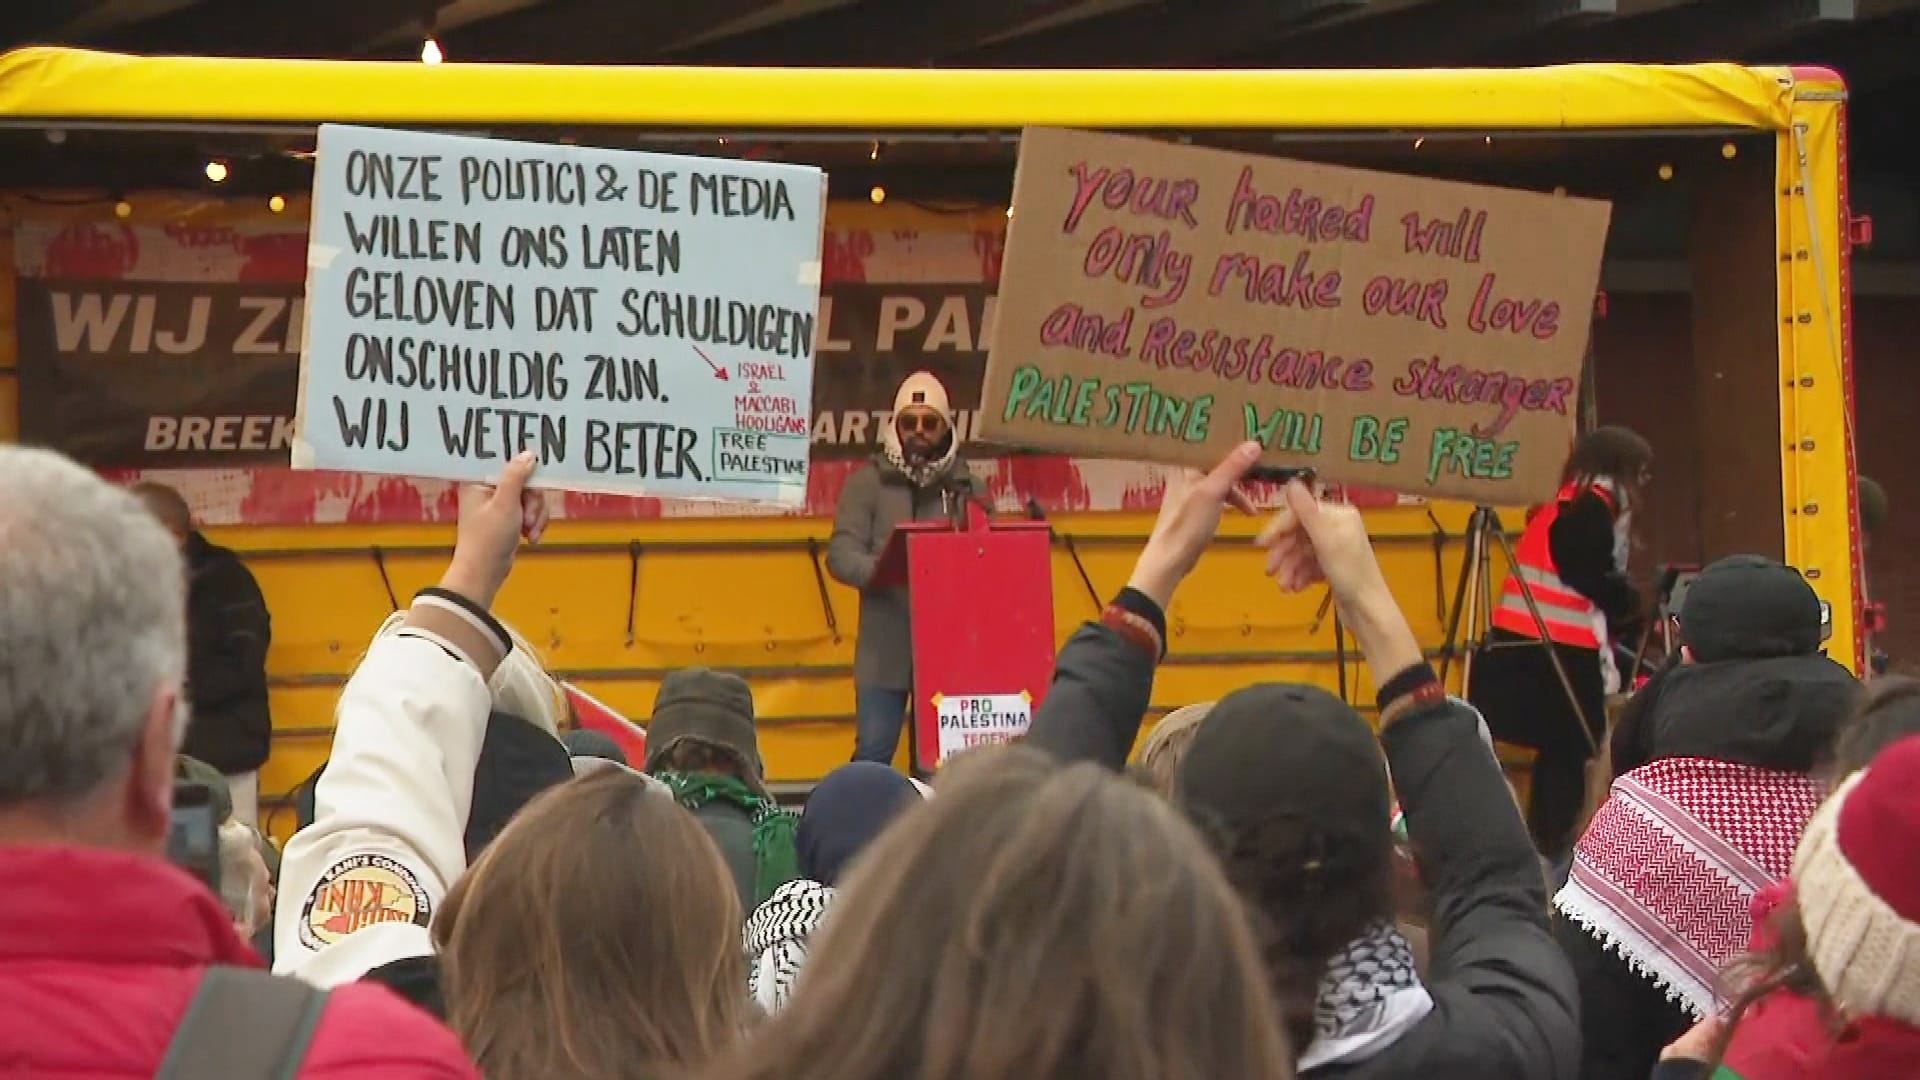 ONZE POLITICI & DE MEDIA
WILLEN ONS LATEN
GELOVEN DAT SCHULDIGEN
ONSCHULDIG ZIJN.
WIJ WETEN BETER.
ISRAEL
&
MACCABI
HOOLIGANS
FREE
PALESTINE
YOUR hatRed will
only make ouR love
and Resistance stRongeR
PALESTINE WILL BE FREE
WIJ
BREEK
PRO
PALESTINA